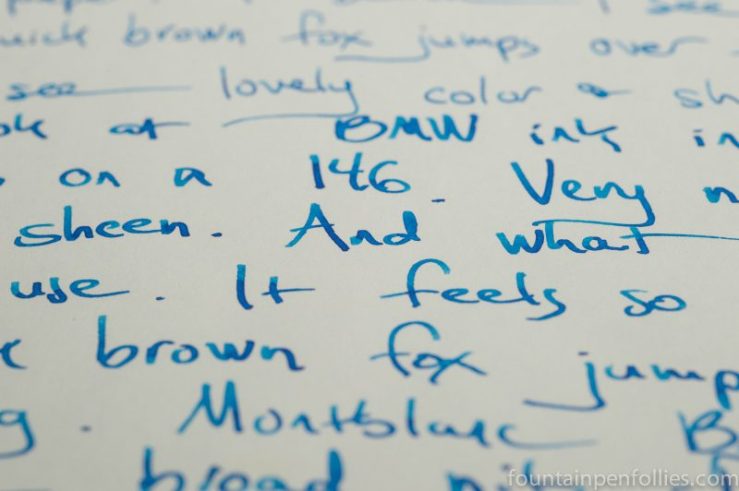 I see
quick brown fox jumps over
see lovely color & sh
ok at BMW ink in
on a 146. Very n
sheen. And what
use. It feels so
brown fox jump
g. Montblanc B
broad nib
fountainpenfollies.com